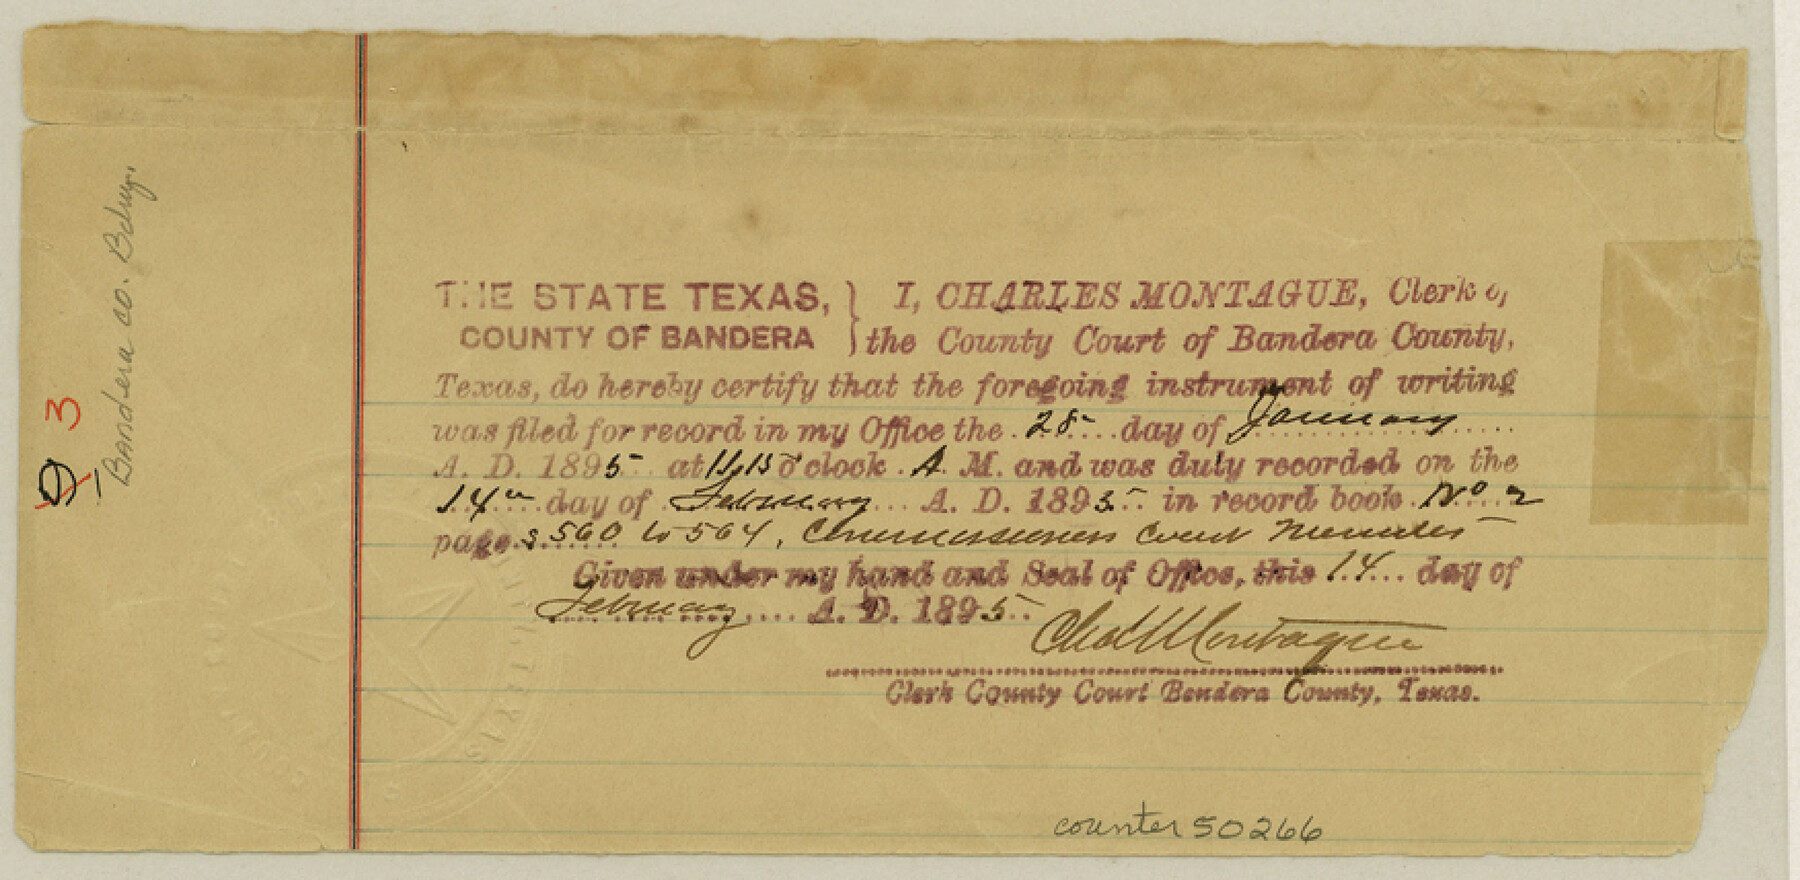 Bandera Co. Bdry.
3
THE STATE TEXAS, } I, CHARLES MONTAGUE, Clerk of
COUNTY OF BANDERA } the County Court of Bandera County,
Texas, do hereby certify that the foregoing instrument of writing
was filed for record in my Office the 28 day of January
A. D. 1895 at 11/15 o'clock A. M. and was duly recorded on the
14" day of February A. D. 1895 in record book No 2
pages 560 to 564, Commissioners Court Minutes
Given under my hand and Seal of Office, this 14 day of
February A. D. 1895
Chas Montague
Clerk County Court Bandera County, Texas.
counter 50266